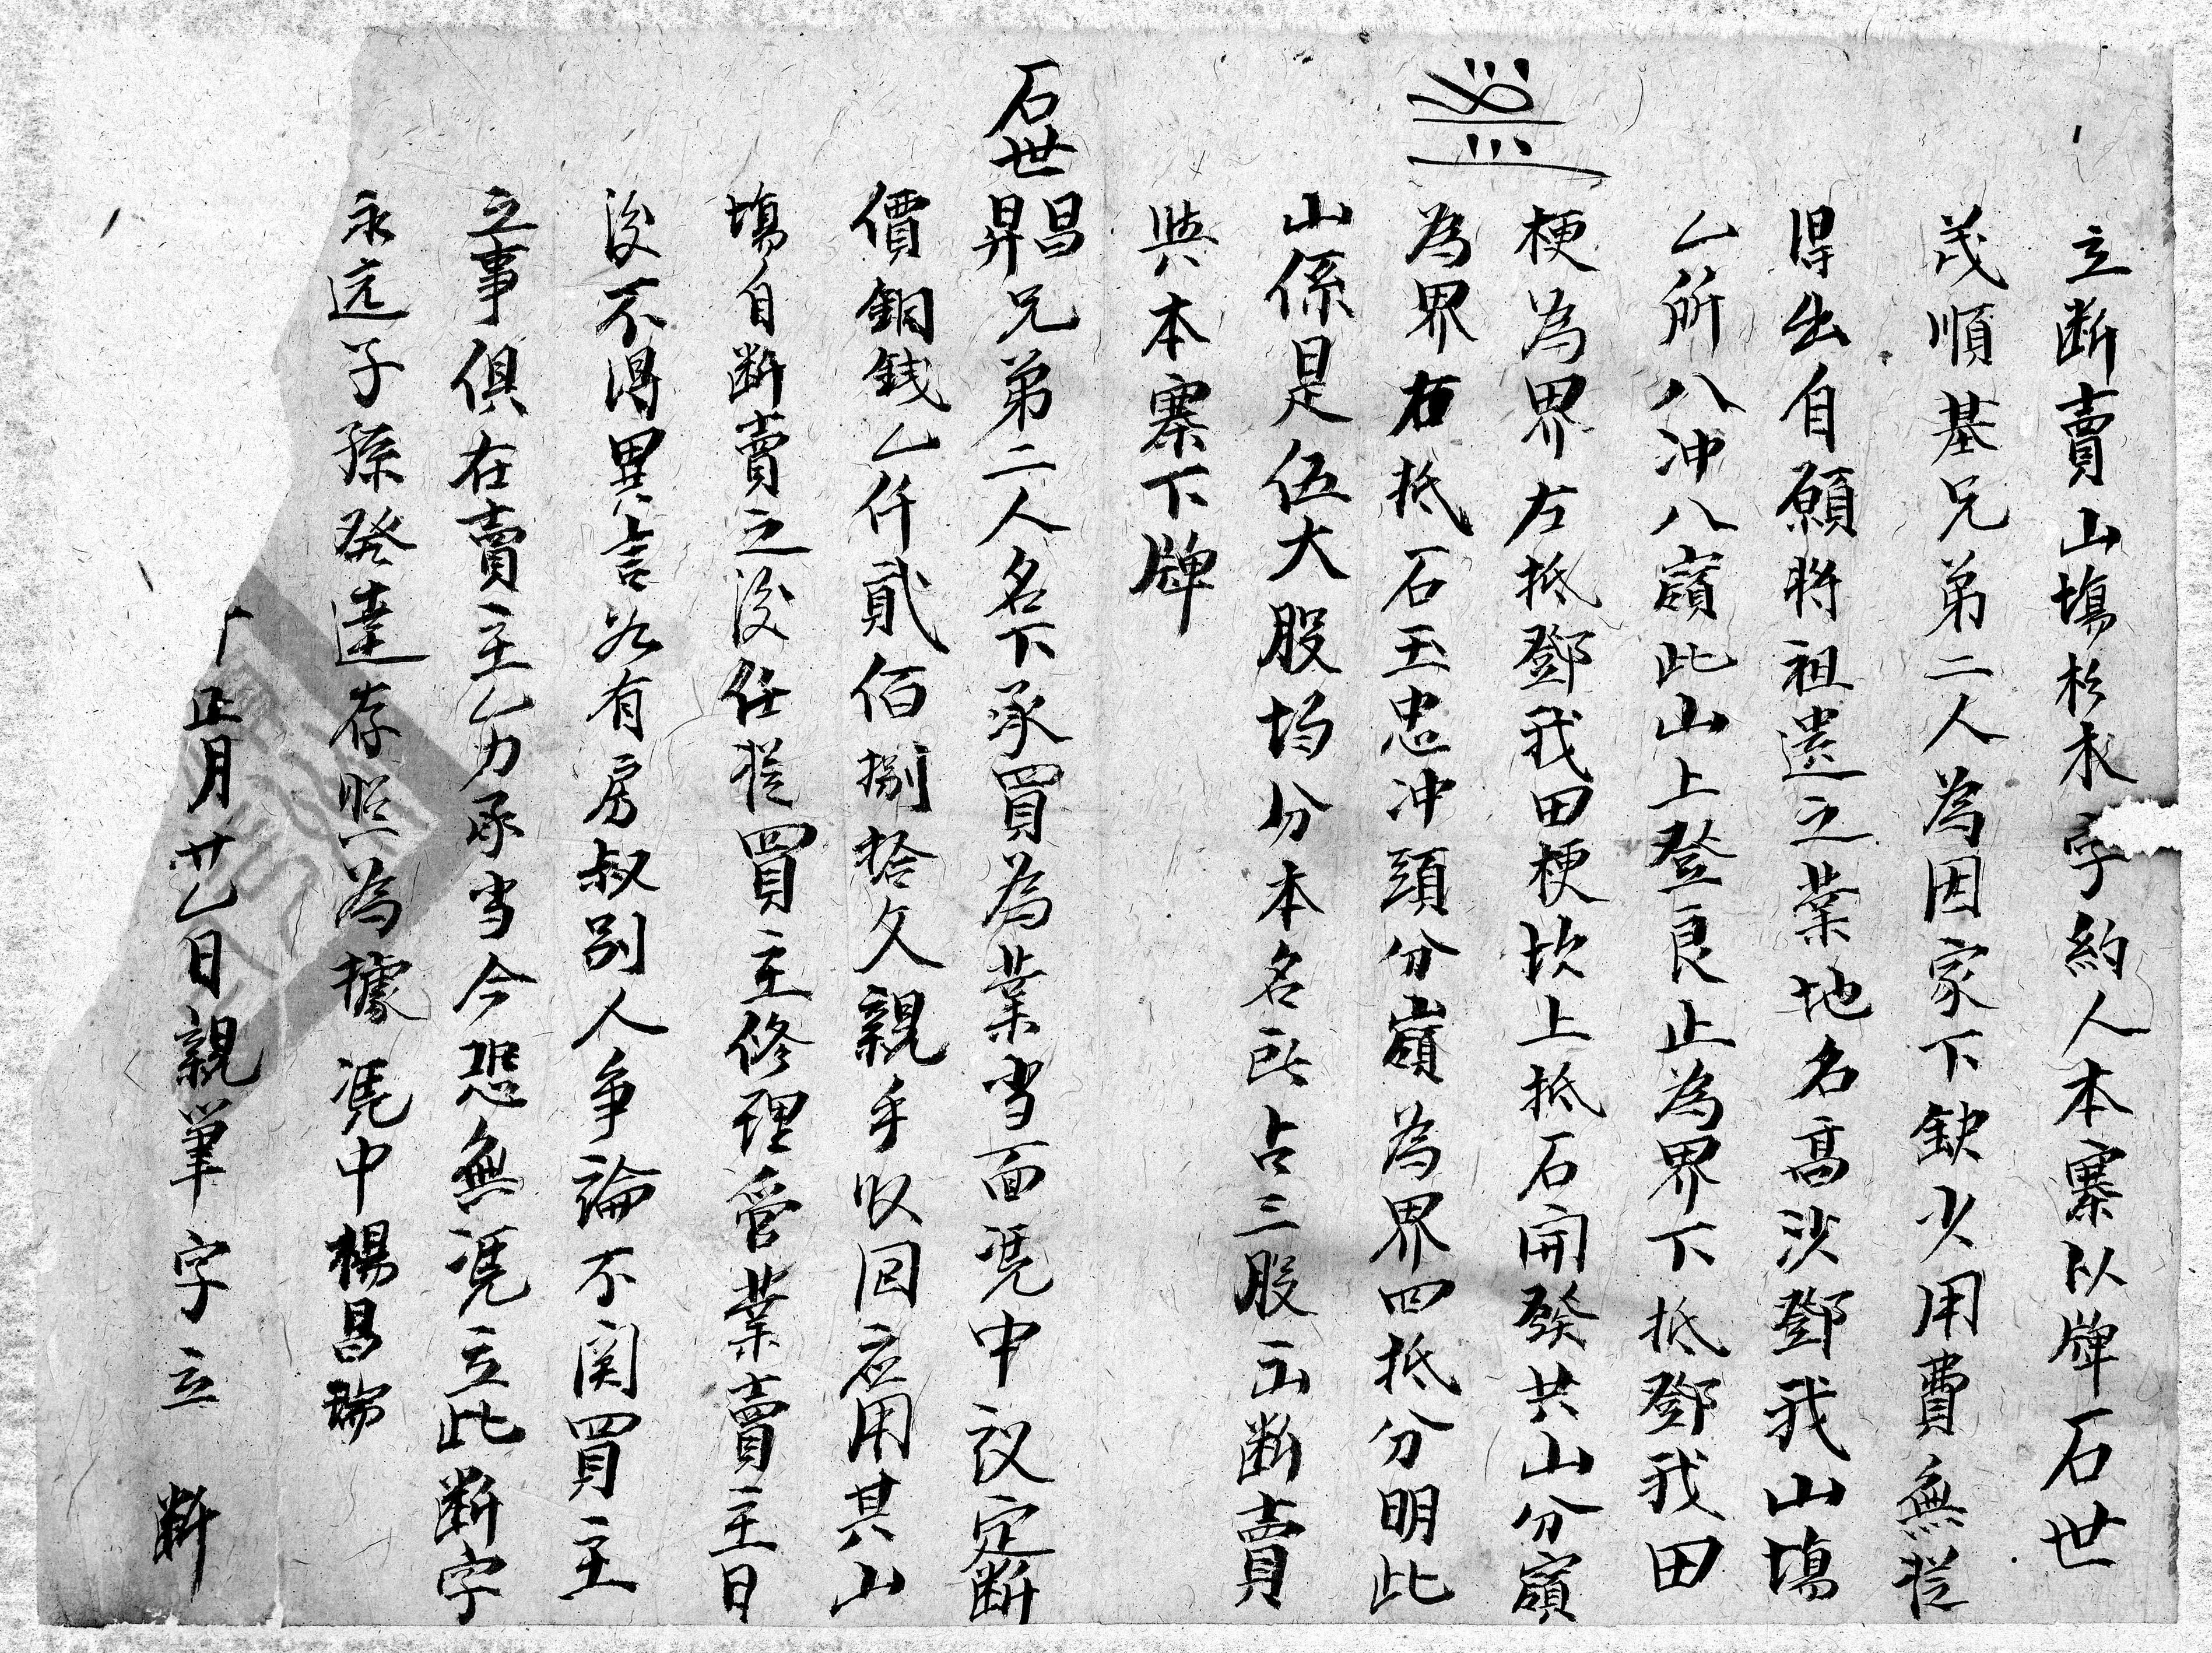 立断賣山塲杉木字約人本寨以牌石世
茂順基兄弟二人為因家下缺少用費無從
得出自願將祖遺之業地名髙沙鄧我山塲
乙所八冲八嶺此山上登良止為界下抵鄧我田
梗為界左抵鄧我田梗坎上抵石開發共山分嶺
為界右抵石玉忠冲頭分嶺為界四抵分明此
山係是伍大股均分本名所占三股正断賣
與本寨下牌
石世昌昇兄弟二人名下承買為業当面凴中议定断
價銅銭乙仟貳佰捌拾文親手收回应用其山
塲自断賣之後任從買主修理管業賣主日
後不得異言若有房叔别人争論不関買主
之事俱在賣主乙力承当今恐無凴立此断字
永远子孫發達存照為據 凴中楊昌瑞
正月廿乙日親筆字立 断